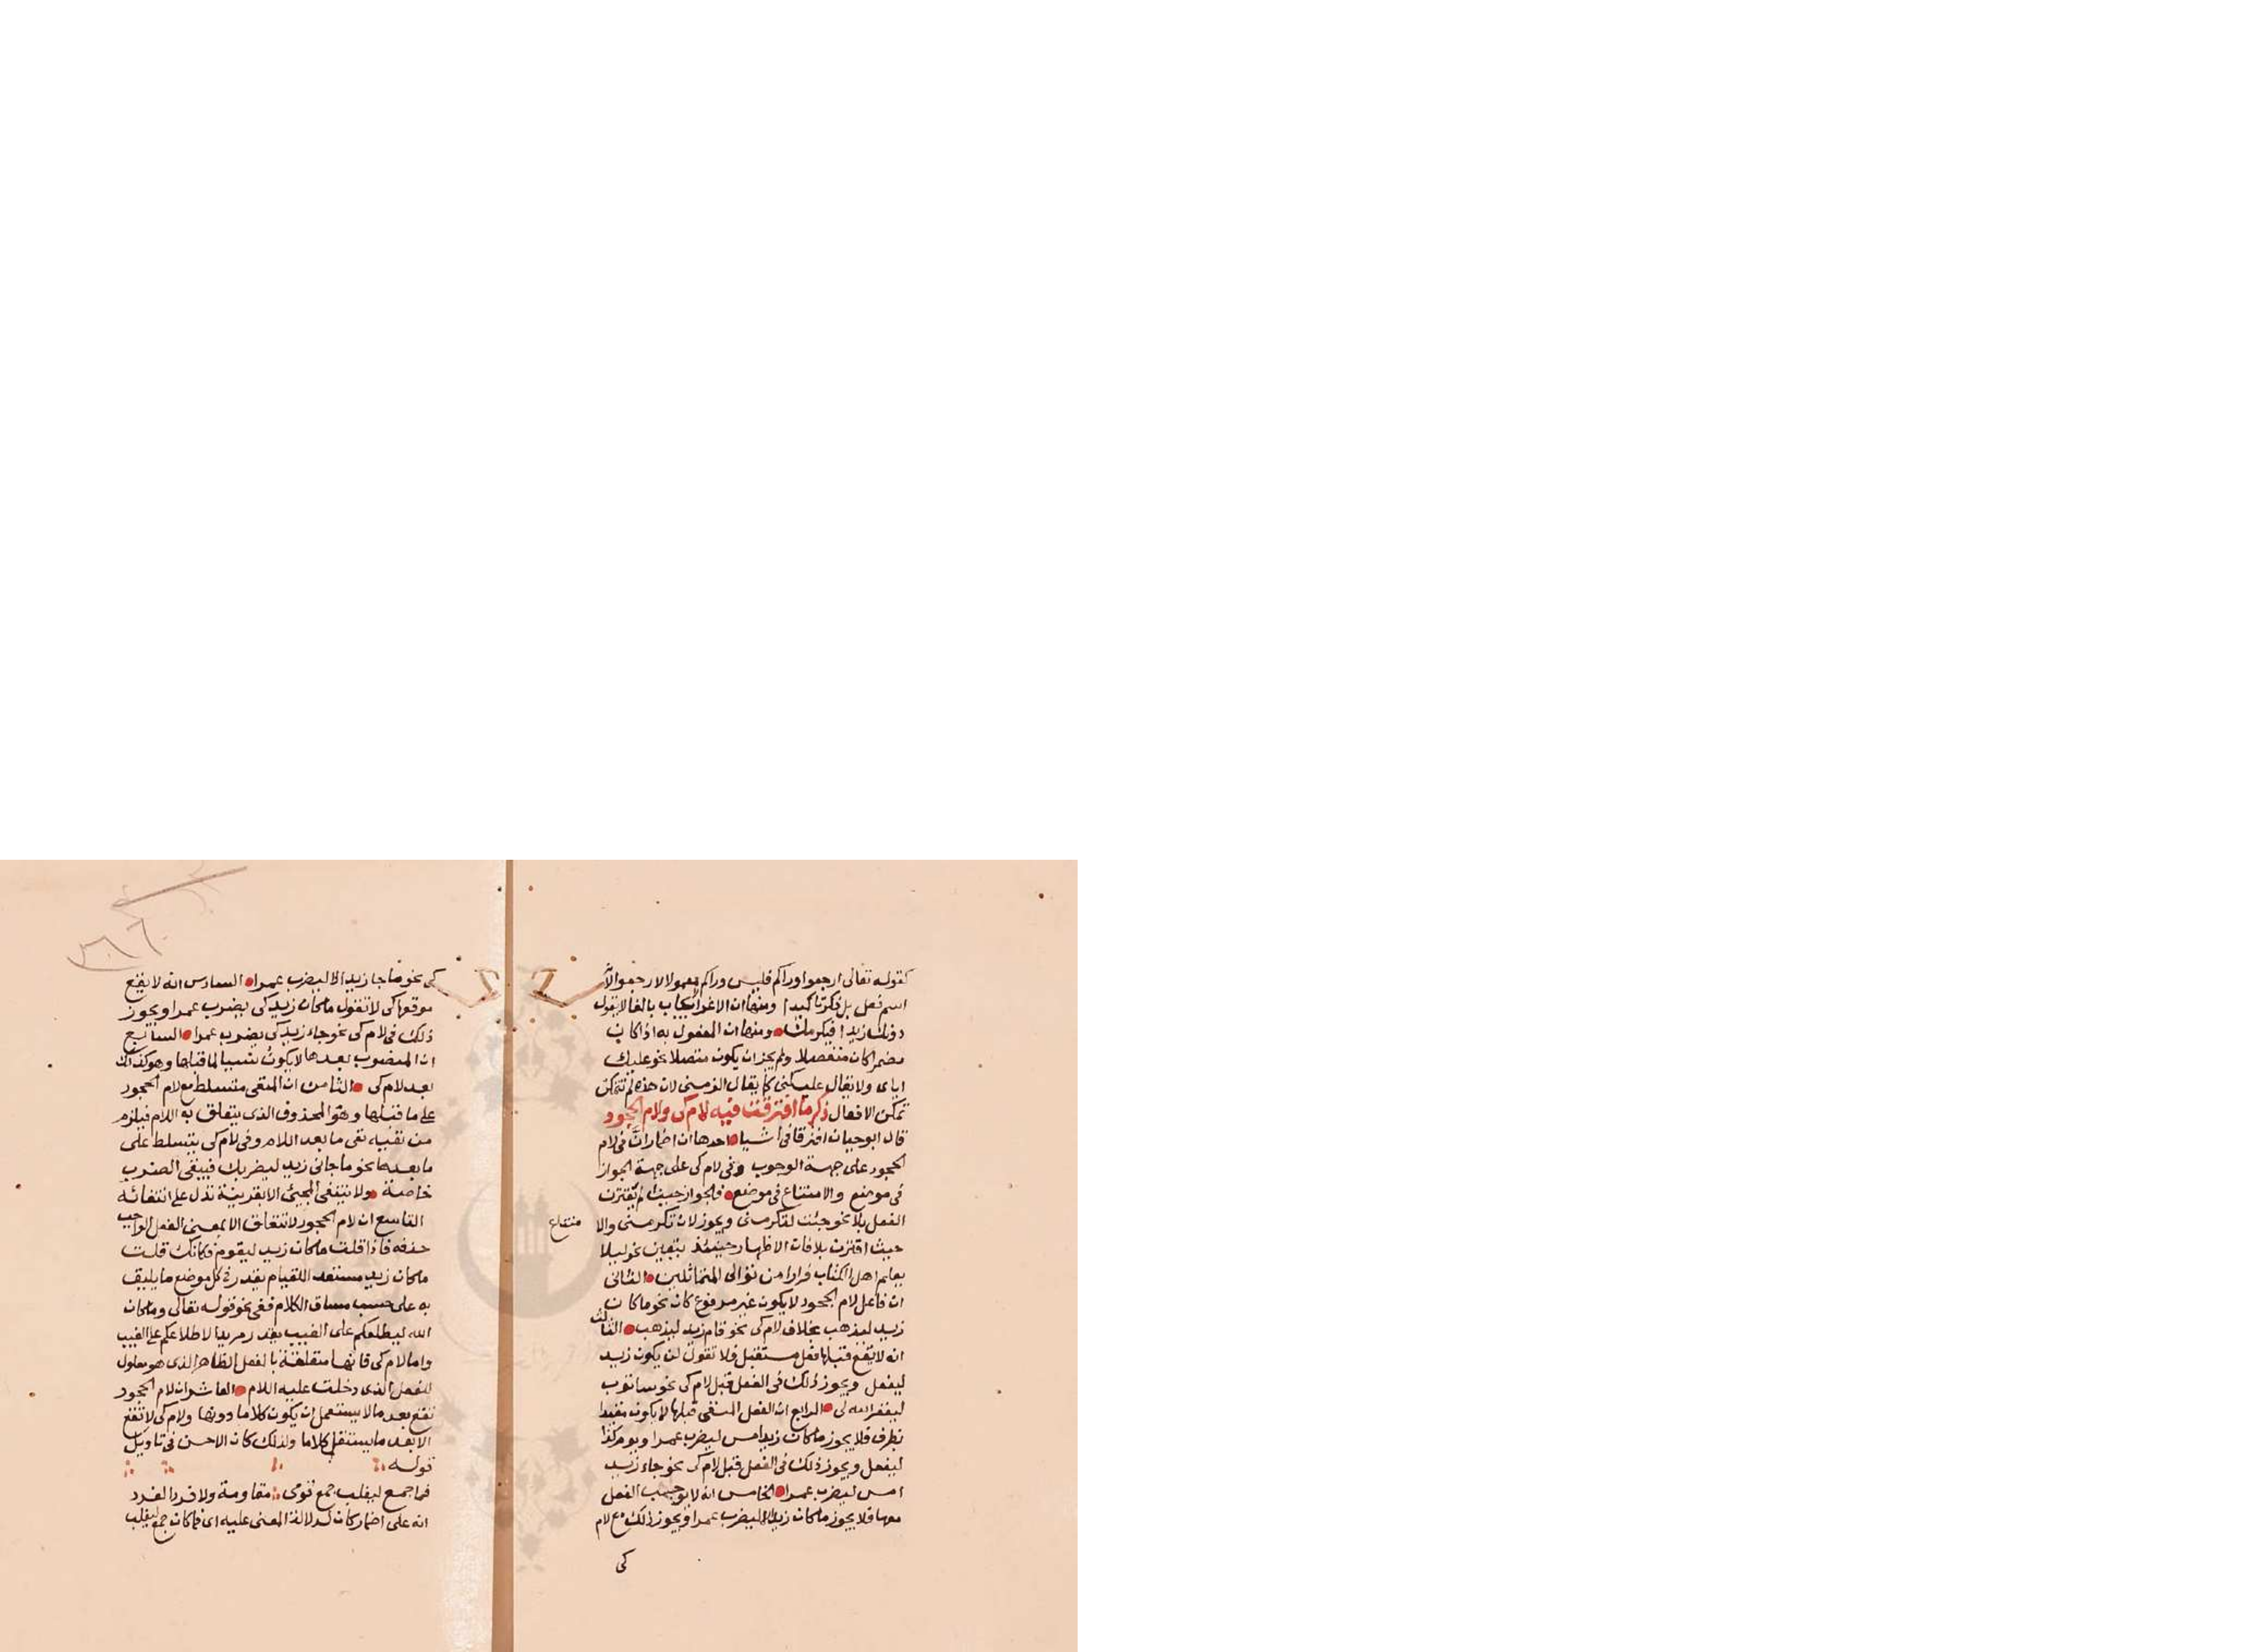 كقوله تعالى ارجعوا وراكم فليس وراكم معمولا لارجعوا لانه
اسم فعل بل ذكر تاكيدا ومنها ان الاغرا لا يجاب بالفا لا يقول
دونك زيدا فيكرمك ومنها ان المفعول به اذا كان
مضمرا كان منفصلا ولم يجز ان يكون متصلا نحو عليك
اياى ولا يقال عليكنى كما يقال الزمنى لان هذه لم تتمكن
تمكن الافعال ذكر ما افترقت فيه لام كى ولام الجحود
قال ابو حيان افترقا فى اشيا احدها ان اضمار ان فى لام
الجحود على جهة الوجوب وفى لام كى على جهة الجواز
فى موضع والامتناع فى موضع فالجواز حيث لم يقترن
الفعل بلا نحو جئت لتكرمنى ويجوز لان تكرمنى والا
متناع
حيث اقترن بلا فان الاظهار حينئذ يتعين نحو ليلا
يعلم اهل الكتاب فرارا من توالى المتماثلين الثانى
ان فاعل لام الجحود لا يكون غير مرفوع كان نحو ما كان
زيد ليذهب بخلاف لام كى نحو قام زيد ليذهب الثالث
انه لا يقع قبلها فعل مستقبل فلا تقول لن يكون زيد
ليفعل ويجوز ذلك فى الفعل قبل لام كى نحو ساتوب
ليغفر الله لى الرابع ان الفعل المنفى قبلها لا يكون مقيدا
بظرف فلا يجوز ما كان زيد امس ليضرب عمرا ويوم كذا
ليفعل ويجوز ذلك فى الفعل قبل لام كى نحو جاء زيد
امس ليضرب عمرا الخامس انه لا يوجب الفعل
معها فلا يجوز ما كان زيد الا ليضرب عمرا ويجوز ذلك مع لام
كى
كى نحو ما جا زيد الا ليضرب عمرا السادس انه لا يقع
موقعها كى لا تقول ما كان زيد كى يضرب عمرا ويجوز
ذلك فى لام كى نحو جاء زيد كى يضرب عمرا السابع
ان المنصوب بعدها لا يكون سببا لما قبلها وهو كذلك
بعد لام كى الثامن ان المنفى متسلط مع لام الجحود
على ما قبلها وهو المحذوف الذى يتعلق به اللام فيلزم
من نفيه نفى ما بعد اللام وفى لام كى يتسلط على
ما بعدها نحو ما جانى زيد ليضربك فينفى الضرب
خاصة ولا ينتفى المجئ الا بقرينة تدل على انتفائه
التاسع ان لام الجحود لا تتعلق الا بمعنى الفعل الواجب
حذفه فاذا قلت ما كان زيد ليقوم فكانك قلت
ما كان زيد مستعدا للقيام يقدر فى كل موضع ما يليق
به على حسب مساق الكلام ففى نحو قوله تعالى وما كان
الله ليطلعكم على الغيب يقدر مريدا لاطلاعكم على الغيب
واما لام كى فانها متعلقة بالفعل الظاهر الذى هو معلول
للفعل الذى دخلت عليه اللام العاشر ان لام الجحود
تقع بعد ما لا يستعمل ان يكون كلاما دونها ولام كى لا تقع
الا بعد ما يستقل كلاما ولذلك كان الاحسن فى تاويل
قوله
فما جمع ليغلب جمع قومى مقاومة ولا فردا لفرد
انه على اضمار كان لدلالة المعنى عليه اى فما كان جمع ليغلب